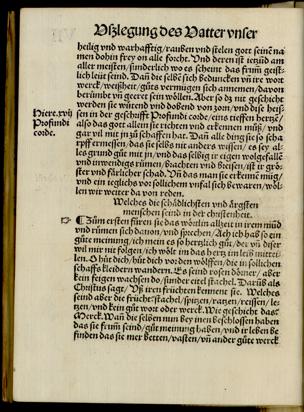 Vßlegung des Vatter vnser
heilig vnd warhafftig/ rauben vnd stelen gott seinē na
men dohin frey on alle forcht. Vnd deren ist ietzūd am
aller meisten/ sunderlich wo es scheint das frūm geist-
lich leüt seind. Dañ die selbē sich beduncken vñ ire wort
werck/ weißheit/ gūts vermügen sich annemen/ dauon
berümbt vñ geeret sein wöllen. Aber so dz nit geschicht
werden sie wütend vnd dobend von zon/ vnd dise heis-
Hiere.xvij
Profundi
corde.
sen in der geschrifft Profundi corde/ eins tieffen hertzē/
also das gott allein sie richten vnd erkennen mūß/ vnd
gar vil mit in zū schaffen hat. Dañ alle ding ist jo scha
rpff ermessen/ das sie selbs nit anders wissen/ es sey al-
les grund gūt mit in/ vnd das selbig ir eigen wolgefallē
vnd inwendigs rūmen/ bachten vnd breisen/ ist ir grōs-
ster vnd fārlicher schad. Vñ das man sie erkennē müg/
vnd ein ieglichs vor sollichem vnfal sich bewaren/ wöl-
len wir weiter da von reden.
Welches die schādlichsten vnd ārgsten
menschen seind in der christenheit.
☞ Zūm ersten fūren sie das wōrtlin allzeit in irem mūd
vnd rūmen sich dauon/ vnd sprechen/ Ach ich hab so ein
gūte meinung/ ich mein es so hertzlich gūt/ der vñ diser
wil mir nit folgen/ ich wölt im das hertz im leib mitteil
len. O hūt dich/ hūt dich vor den wölffen/ die in sollichen
schaffs kleidern wandern. Es seind rosen dörner/ aber
kein feigen wachsen do/ sunder eitel stachel. Darūb als
Christus sagt/ Vß iren früchten kennent sie. Welches
seind aber die frücht? stachel/ spitzen/ ratzen/ reissen/ le-
tzen/ vnd kein gūt wort oder werck. Wie geschicht das?
Merck. Wañ die selben nun bey inen beschlossen haben
das sie frūm seind/ gūt meinung haben/ vnd ir leben be
finden das sie mer betten/ vasten/ vñ ander gūte werck